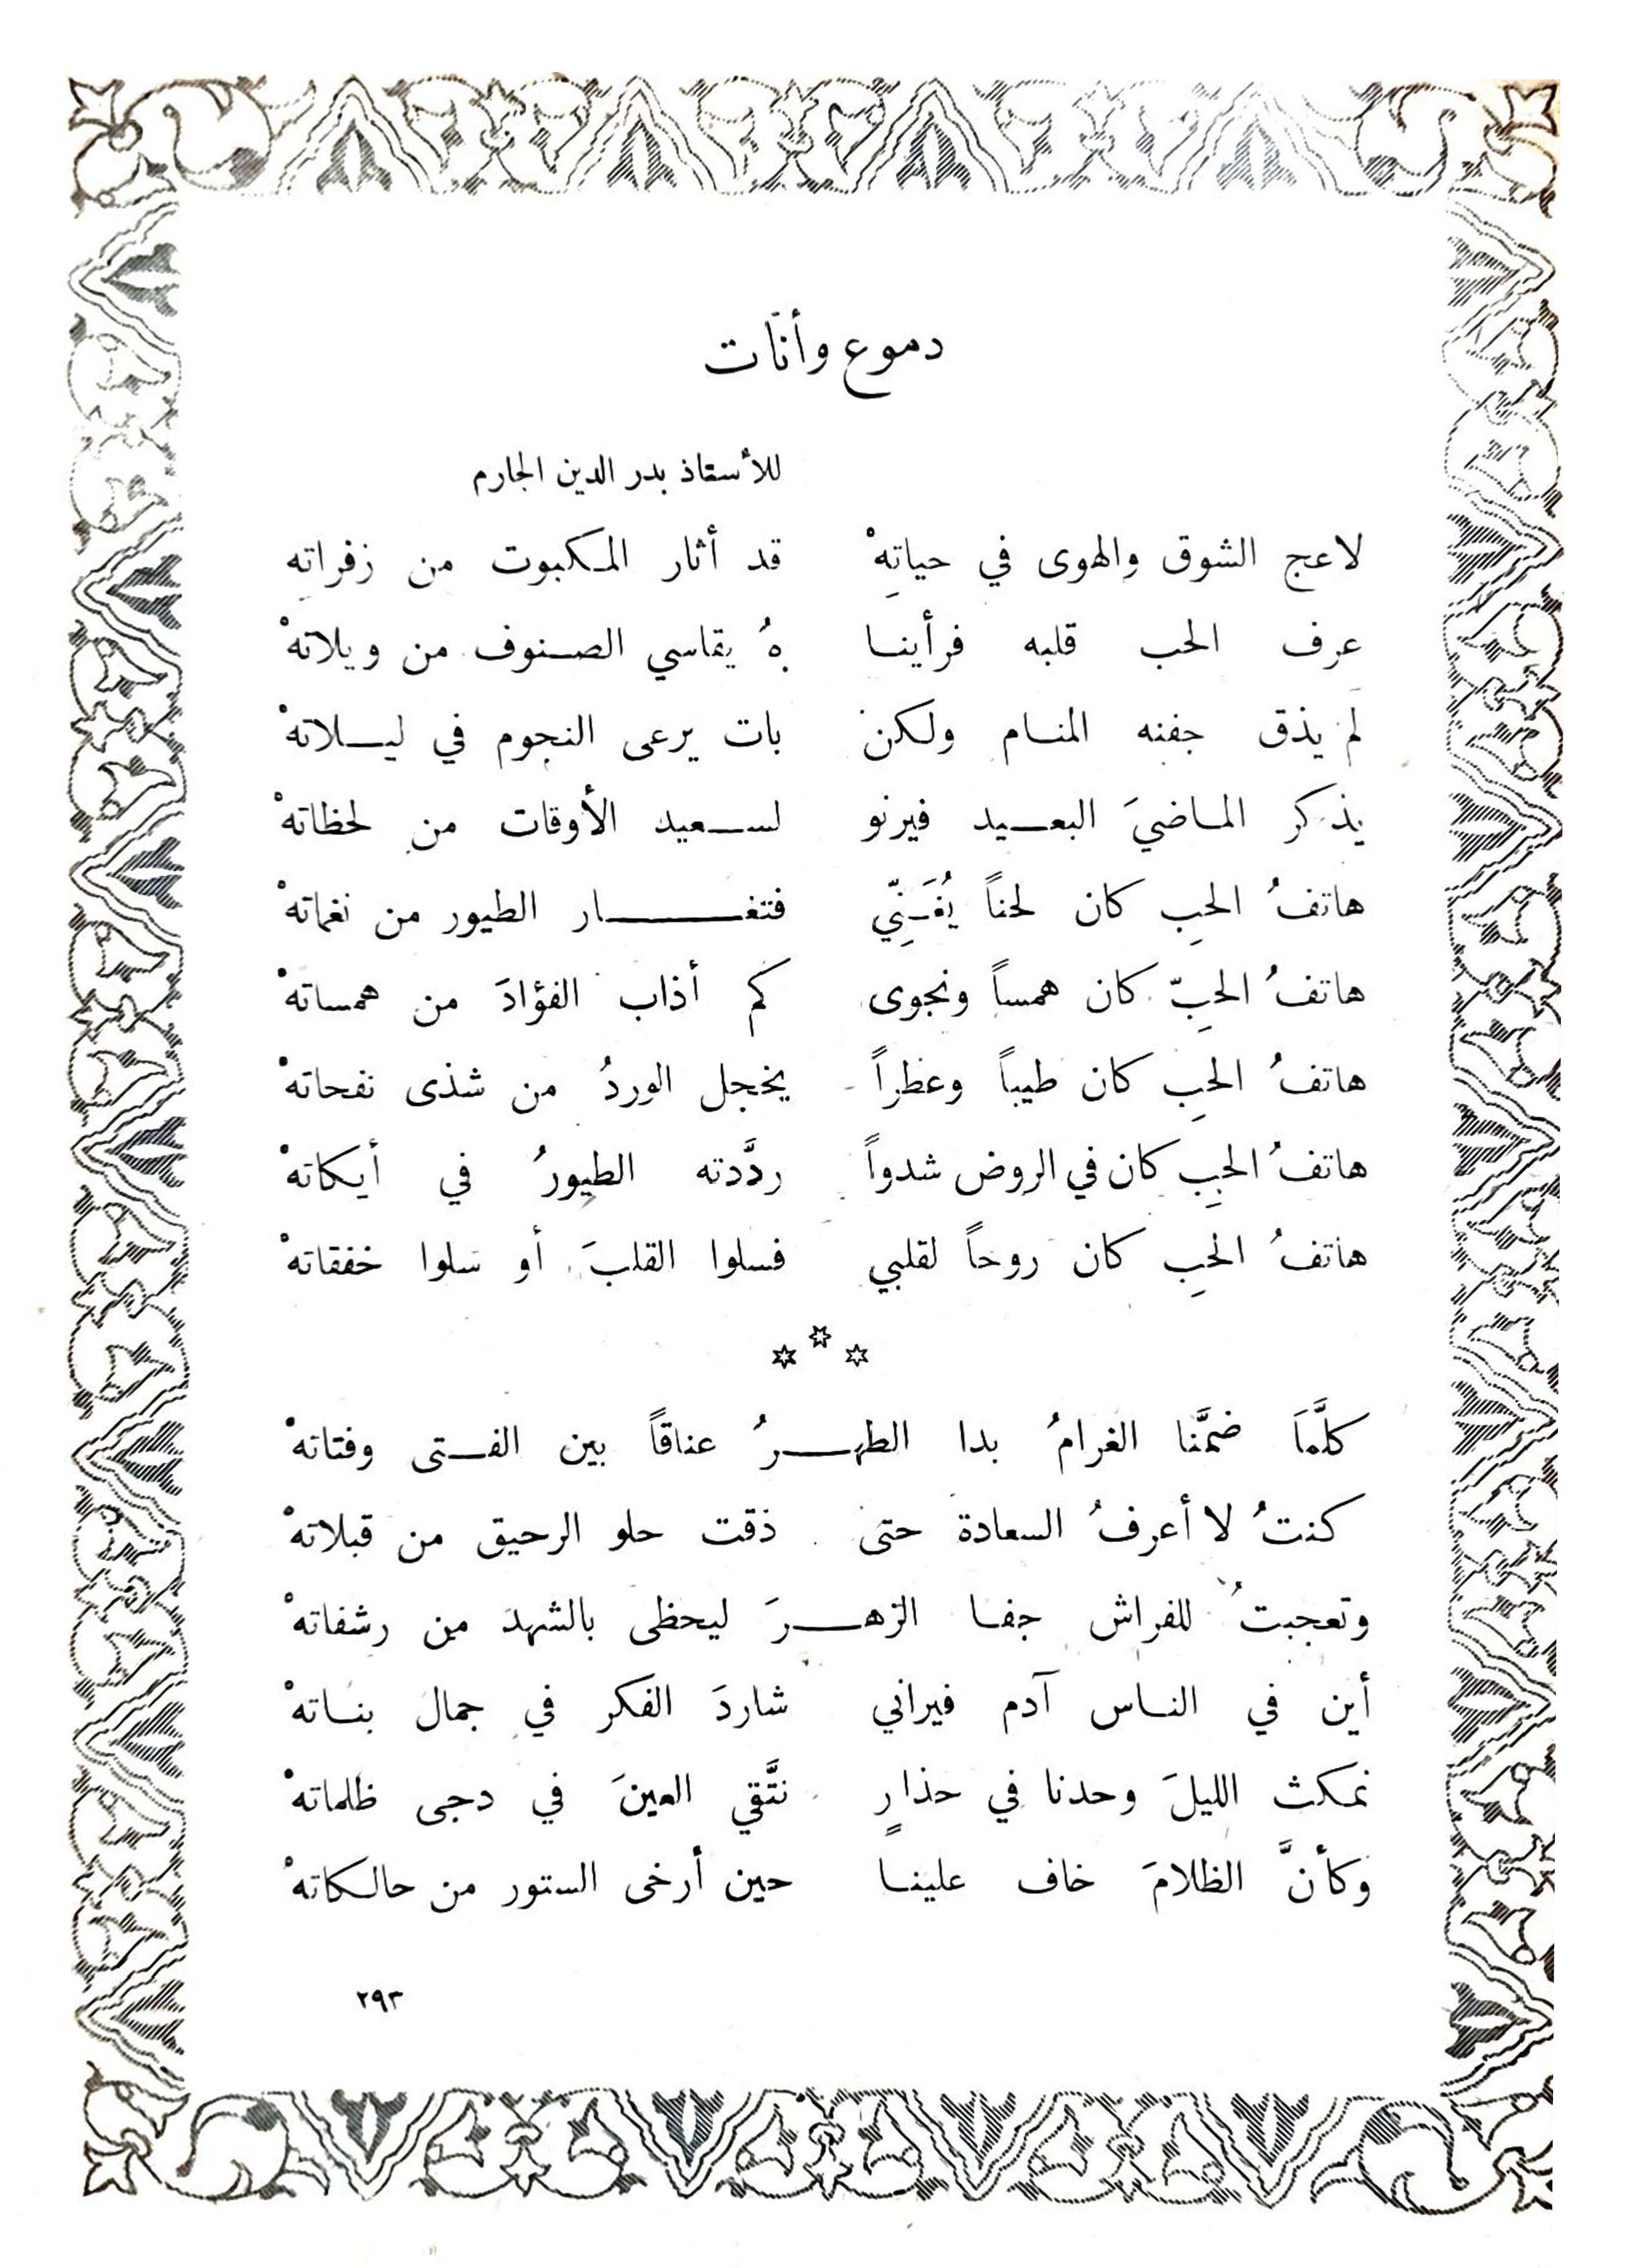 دموع وأنّات
للأستاذ بدر الدين الجارم
لاعج الشوق والهوى في حياتِهْ قد أثار المكبوت من زفراتِهْ
عرف الحب قلبه فرأينا هُ يقاسي الصنوف من ويلاتهْ
لم يذق جفنه المنام ولكن بات يرعى النجوم في ليلاتهْ
يذكر الماضيَ البعيد فيرنو لسعيد الأوقات من لحظاتهْ
هاتفُ الحبِ كان لحناً يُغَنِّي فتغار الطيور من نغماتهْ
هاتفُ الحبِّ كان همساً ونجوى كم أذاب الفؤادَ من همساتهْ
هاتفُ الحبِ كان طيباً وعطراً يخجل الوردُ من شذى نفحاتهْ
هاتفُ الحبِ كان في الروض شدواً ردَّدته الطيورُ في أيكاتهْ
هاتفُ الحبِ كان روحاً لقلبي فسلوا القلبَ أو سلوا خفقاتهْ
***
كلَّماَ ضمَّنا الغرامُ بدا الطهرُ عناقاً بين الفتى وفتاتهْ
كنتُ لا أعرفُ السعادة حتى ذقت حلو الرحيق من قبلاتهْ
وتعجبتُ للفراش جفا الزهرَ ليحظى بالشهد من رشفاتهْ
أين في الناس آدم فيراني شاردَ الفكر في جمال بناتهْ
نمكث الليلَ وحدنا في حذارٍ نتَّقي العينَ في دجى ظلماتهْ
وكأنَّ الظلامَ خاف علينا حين أرخى الستور من حالكاتهْ
٢٩٣